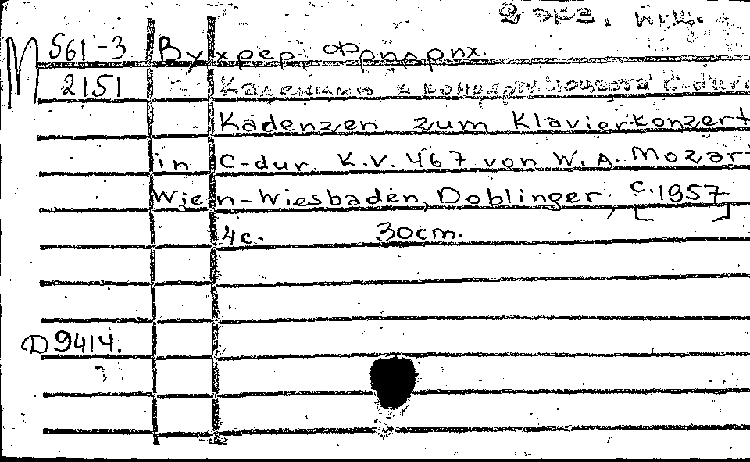 2 экз.
М 561-3 Вухрер, Фридрих.
2151
Kadenzen zum Klavierkonzert
in C-dur K.V. 467 von W.A. Mozar
Wien-Wiesbaden, Doblinger, [c.1957]
4с. 30cm.
D9414.